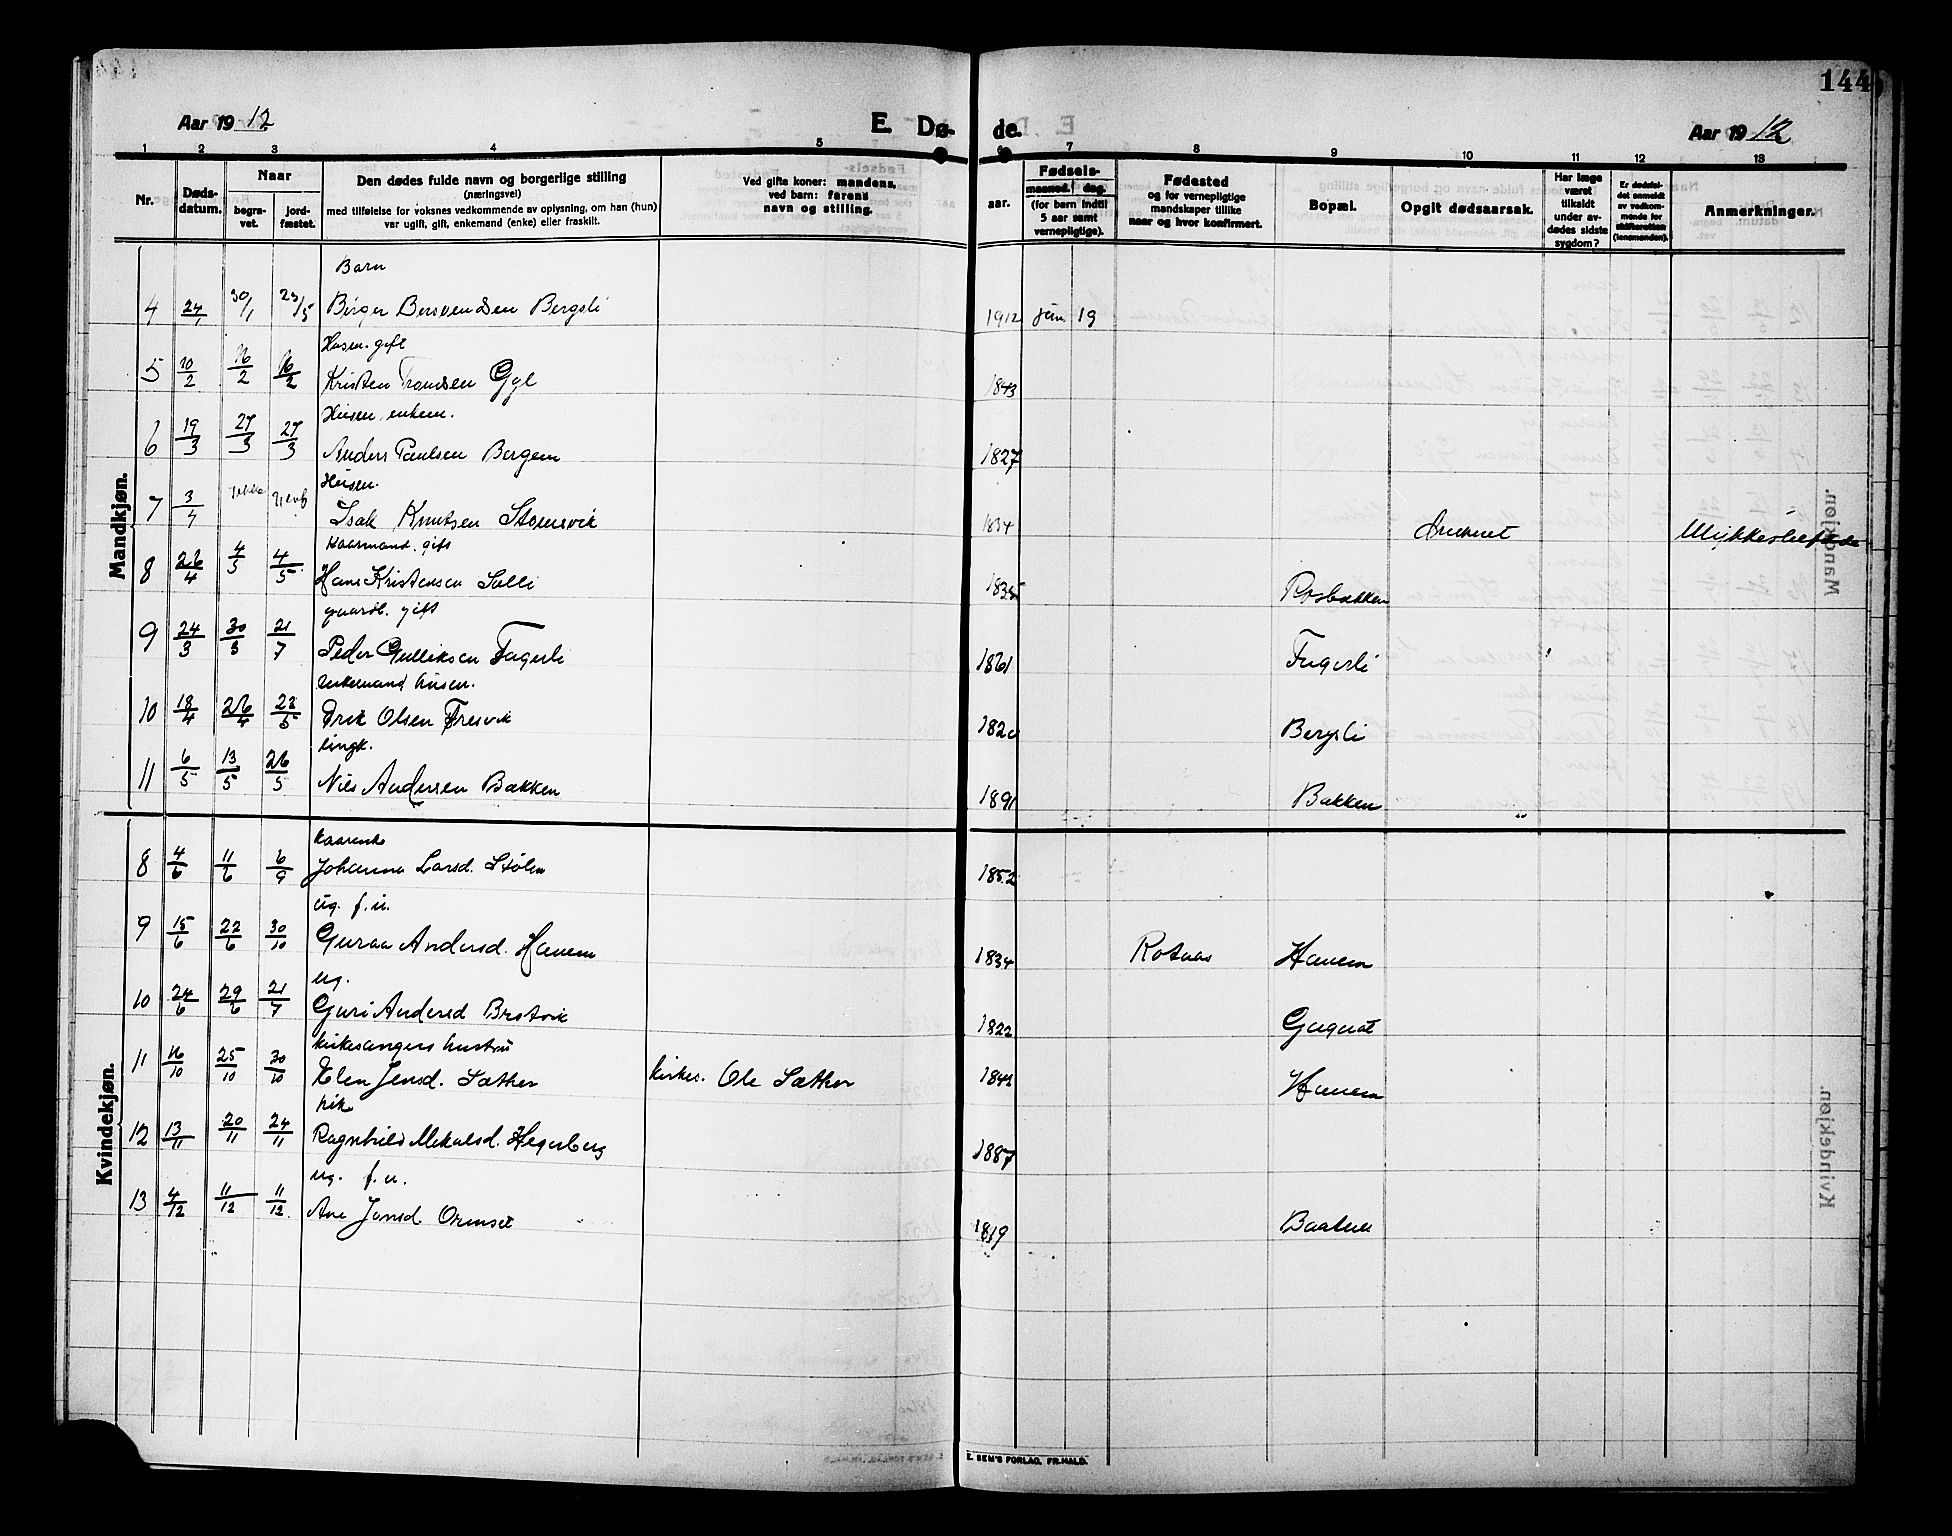 144
Aar 1912
E. Dø- de.
Aar 1912
1 2 3 4 5 6 7 8 9 10 11 12 13
Nr.
Døds-
datum.
Naar
begra-
vet.
jord-
fæstet.
Den dødes fulde navn og borgerlige stilling
(næringsvei)
med tilføielse for voksnes vedkommende av oplysning, om han (hun)
var ugift, gift, enkemand (enke) eller fraskilt.
Ved gifte koner: mandens,
ved barn: farens
navn og stilling.
aar.
Fødsels-
maaned. dag.
(for barn indtil
5 aar samt
vernepligtige).
Fødested
og for vernepligtige
mandskaper tillike
naar og hvor konfirmert.
Bopæl.
Opgit dødsaarsak.
Har læge
været
tilkaldt
under av-
dødes sidste
sygdom?
Er dødsfal-
det anmeldt
av vedkom-
mende for
skifteretten
(lensmanden).
Anmerkninger.
Mandkjøn.
Barn
4 24/1 30/1 23/5 Birger Bersvendsen Bergsli 1912 Jan 19
Husm. gift
5 10/2 16/2 16/2 Kristen Tronsen Gyl 1843
Husm. enkem.
6 19/3 27/3 27/3 Anders Paulsen Bergem 1827
Husm.
7 3/4 Isak Knutsen Stomsvik 1834 Druknet
Kaarmand. gift
8 26/4 4/5 4/5 Hans Kristensen Solli 1835 Rosbakken
gaardb. gift
9 24/3 30/3 21/7 Peder Gulliksen Fagerli 1861 Fagerli
enkemand, husm.
10 18/4 26/4 22/5 Erik Olsen Fresvik Bergsli
ungk.
11 6/5 13/5 26/5 Nils Andersen Bakken 1891 Bakken
Kvindekjøn.
kaarenke
8 4/6 11/6 6/9 Johanna Larsd. Stølen 1852
ug. f.u.
9 15/6 22/6 30/10 Guraa Andersd. Hanem 1834 Rotaas Hanem
ug.
10 24/6 29/6 21/7 Guri Andersd Brstvik 1822
kirkesangers hustru
11 16/10 25/10 30/10 Elen Jensd. Sæther kirkes. Ole Sæther 1841 Hanem
pike
12 13/11 20/11 24/11 Ragnhild Mikalsd. Hegerberg 1887
ug. f.u.
13 4/12 11/12 11/12 Ane Jonsd Ormset 1819
E. SEM'S FORLAG, FR.HALD.